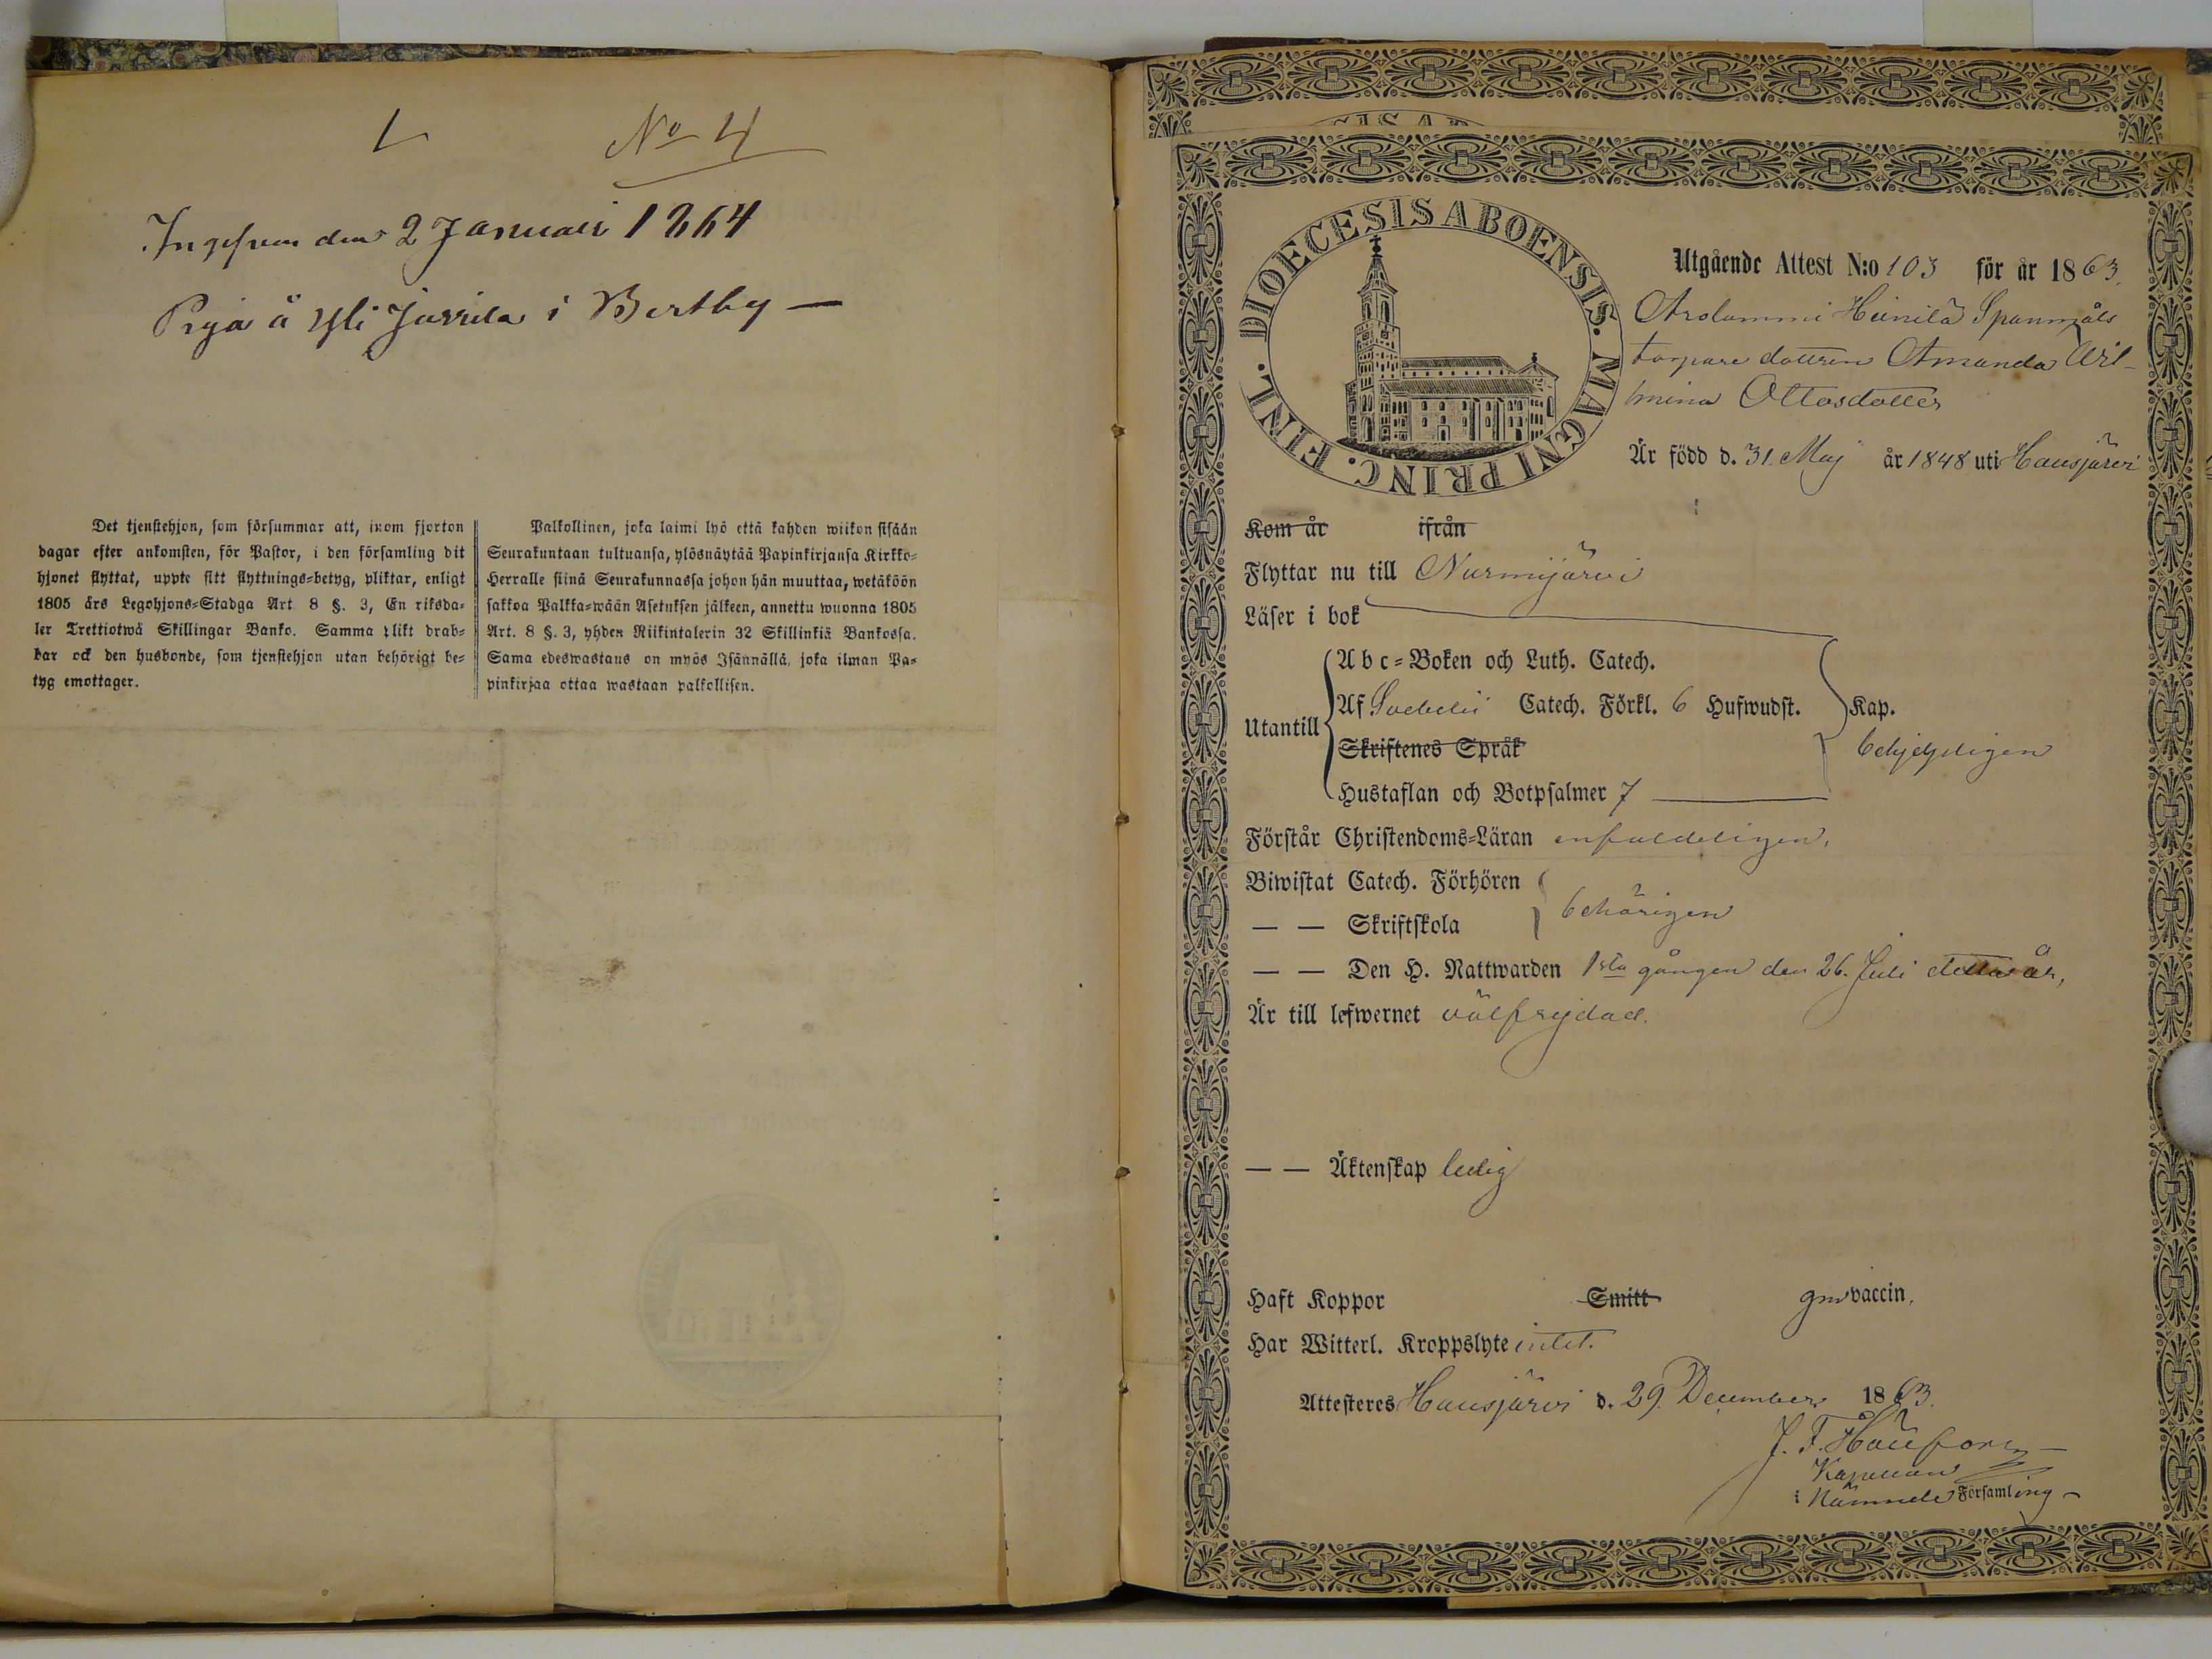 No 4
Ingifven den 2 Januari 1864
Piga å Yli Jussila i Pertby —
Det tjenstehjon, som försummar att, inom fjorton
dagar efter ankomsten, för Pastor, i den församling dit
hjonet flyttat, uppte sitt flyttnings-betyg, pliktar, enligt
1805 års Legohjons-Stadga Art. 8 §. 3, En riksda-
ler Trettiotwå Skillingar Banko. Samma plikt drab-
bar ock den husbonde, som tjenstehjon utan behörigt be-
tyg emottager.
Palkollinen, joka laimi lyö että kahden wiikon sisään
Seurakuntaan tultuansa, ylösnäytää Papinkirjansa Kirkko-
Herralle siinä Seurakunnassa johon hän muuttaa, wetäköön
sakkoa Palkka-wään Asetuksen jälkeen, annettu wuonna 1805
Art. 8 §. 3, yhden Riikintalerin 32 Skillinkiä Bankossa.
Sama edeswastaus on myös Isännällä, joka ilman Pa-
pinkirjaa ottaa wastaan palkollisen.
DIOECESIS ABOENSIS. MAGNI PRINC. FINL.
Utgående Attest N:o 103 för år 1863.
Arolammi Heinilä Spannmåls
torpare dottren Amanda Wil-
hmina Ottosdotter
Är född d. 31. Maj år 1848 uti Hausjärvi
Kom år ifrån
Flyttar nu till Nurmijärvi
Läser i bok
Utantill
Abc-Boken och Luth. Catech.
Af Svebelii Catech. Förkl. 6 Hufwudst.
Skriftenes Språk
Hustaflan och Botpsalmer 7
Kap.
behjelpligen
Förstår Christendoms-Läran enfaldeligen.
Biwistat Catech. Förhören
— — Skriftskola
behörigen
— — Den H. Nattwarden 1sta gången den 26. Juli detta år,
Är till lefwernet välfrejdad.
— — Äktenskap ledig
Haft Koppor Smitt gm vaccin.
Har Witterl. Kroppslyte intet.
Attesteres Hausjärvi d. 29. December 1863.
J. F.
Kapellan
i nämnde Församling